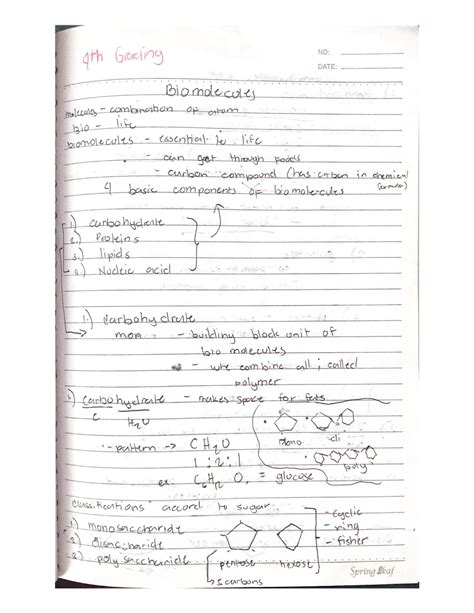 4th Grading
NO:
DATE:
Biomolecules
molecules - combination of atom
bio - life
biomolecules - essential to life
- can get through foods
- carbon compound (has carbon in chemical
4 basic components of biomolecules
1) carbohydrate
2.) Proteins
3.) lipids
4.) Nucleic acid
1.) carbohydrate
mon - building block unit of
bio molecules
- combine all ; called
polymer
carbohydrate - makes space for fats
C H2O
mono di
- pattern → CH2O
1 : 2 : 1
poly
ex: = glucose
classifications accord to sugar:
1) monosaccharide
2) disaccharide
3) polysaccharide
pentose
5 carbons
- cyclic
- ring
- fisher
Spring Leaf